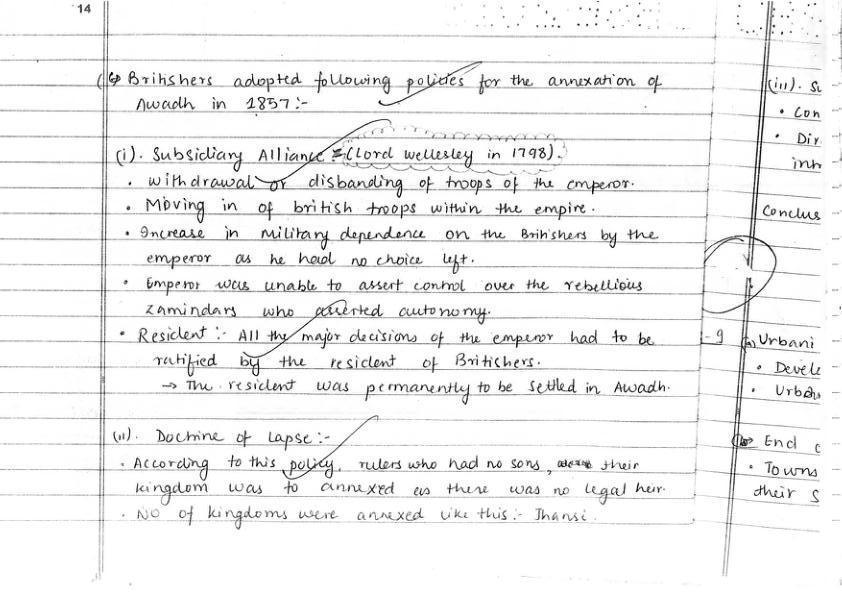 14
Britishers adopted following policies for the annexation of
Awadh in 1857:-
(i). Subsidiary Alliance :- (Lord Wellesley in 1798).
• Withdrawal or disbanding of troops of the emperor.
• Moving in of british troops within the empire.
• Increase in military dependence on the Britishers by the
emperor as he had no choice left.
• Emperor was unable to assert control over the rebellious
zamindars who asserted autonomy.
• Resident :- All the major decisions of the emperor had to be
ratified by the resident of Britishers.
→ The resident was permanently to be settled in Awadh.
(ii). Doctrine of Lapse :-
• According to this policy, rulers who had no sons, their
kingdom was to annexed as there was no legal heir.
• NO of kingdoms were annexed like this :- Jhansi.
(iii). Su
• Con
• Dir
inh
Conclus
- 9
(a) Urbani
• Develo
• Urba
End
• Towns
their s